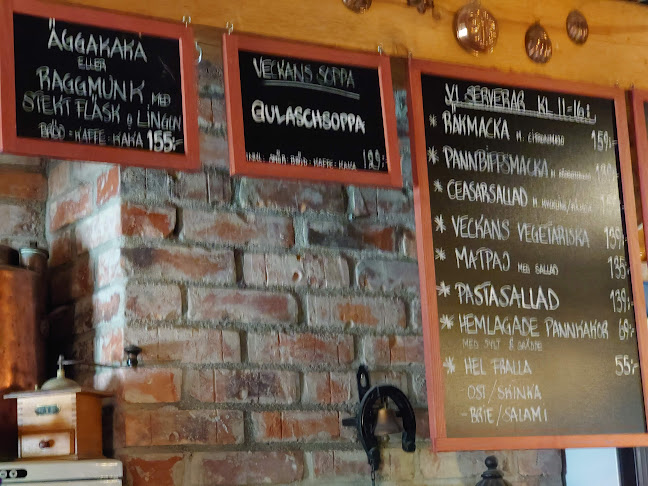 ÄGGAKAKA
ELLER
RAGGMUNK MED
STEKT FLÄSK & LINGON
BRÖD - KAFFE - KAKA 155:-
VECKANS SOPPA
GULASCHSOPPA
BRÖD - KAFFE - KAKA
VI SERVERAR KL 11-16:
* RÄKMACKA M. 159:-
* PANNBIFFSMACKA M
* CEASARSALLAD M
* VECKANS VEGETARISKA
* MATPAJ MED SALLAD
* PASTASALLAD 139:-
* HEMLAGADE PANNKAKOR 69:-
MED SYLT & GRÄDDE
* HEL FRALLA 55:-
- OST/SKINKA
- BRIE/SALAMI